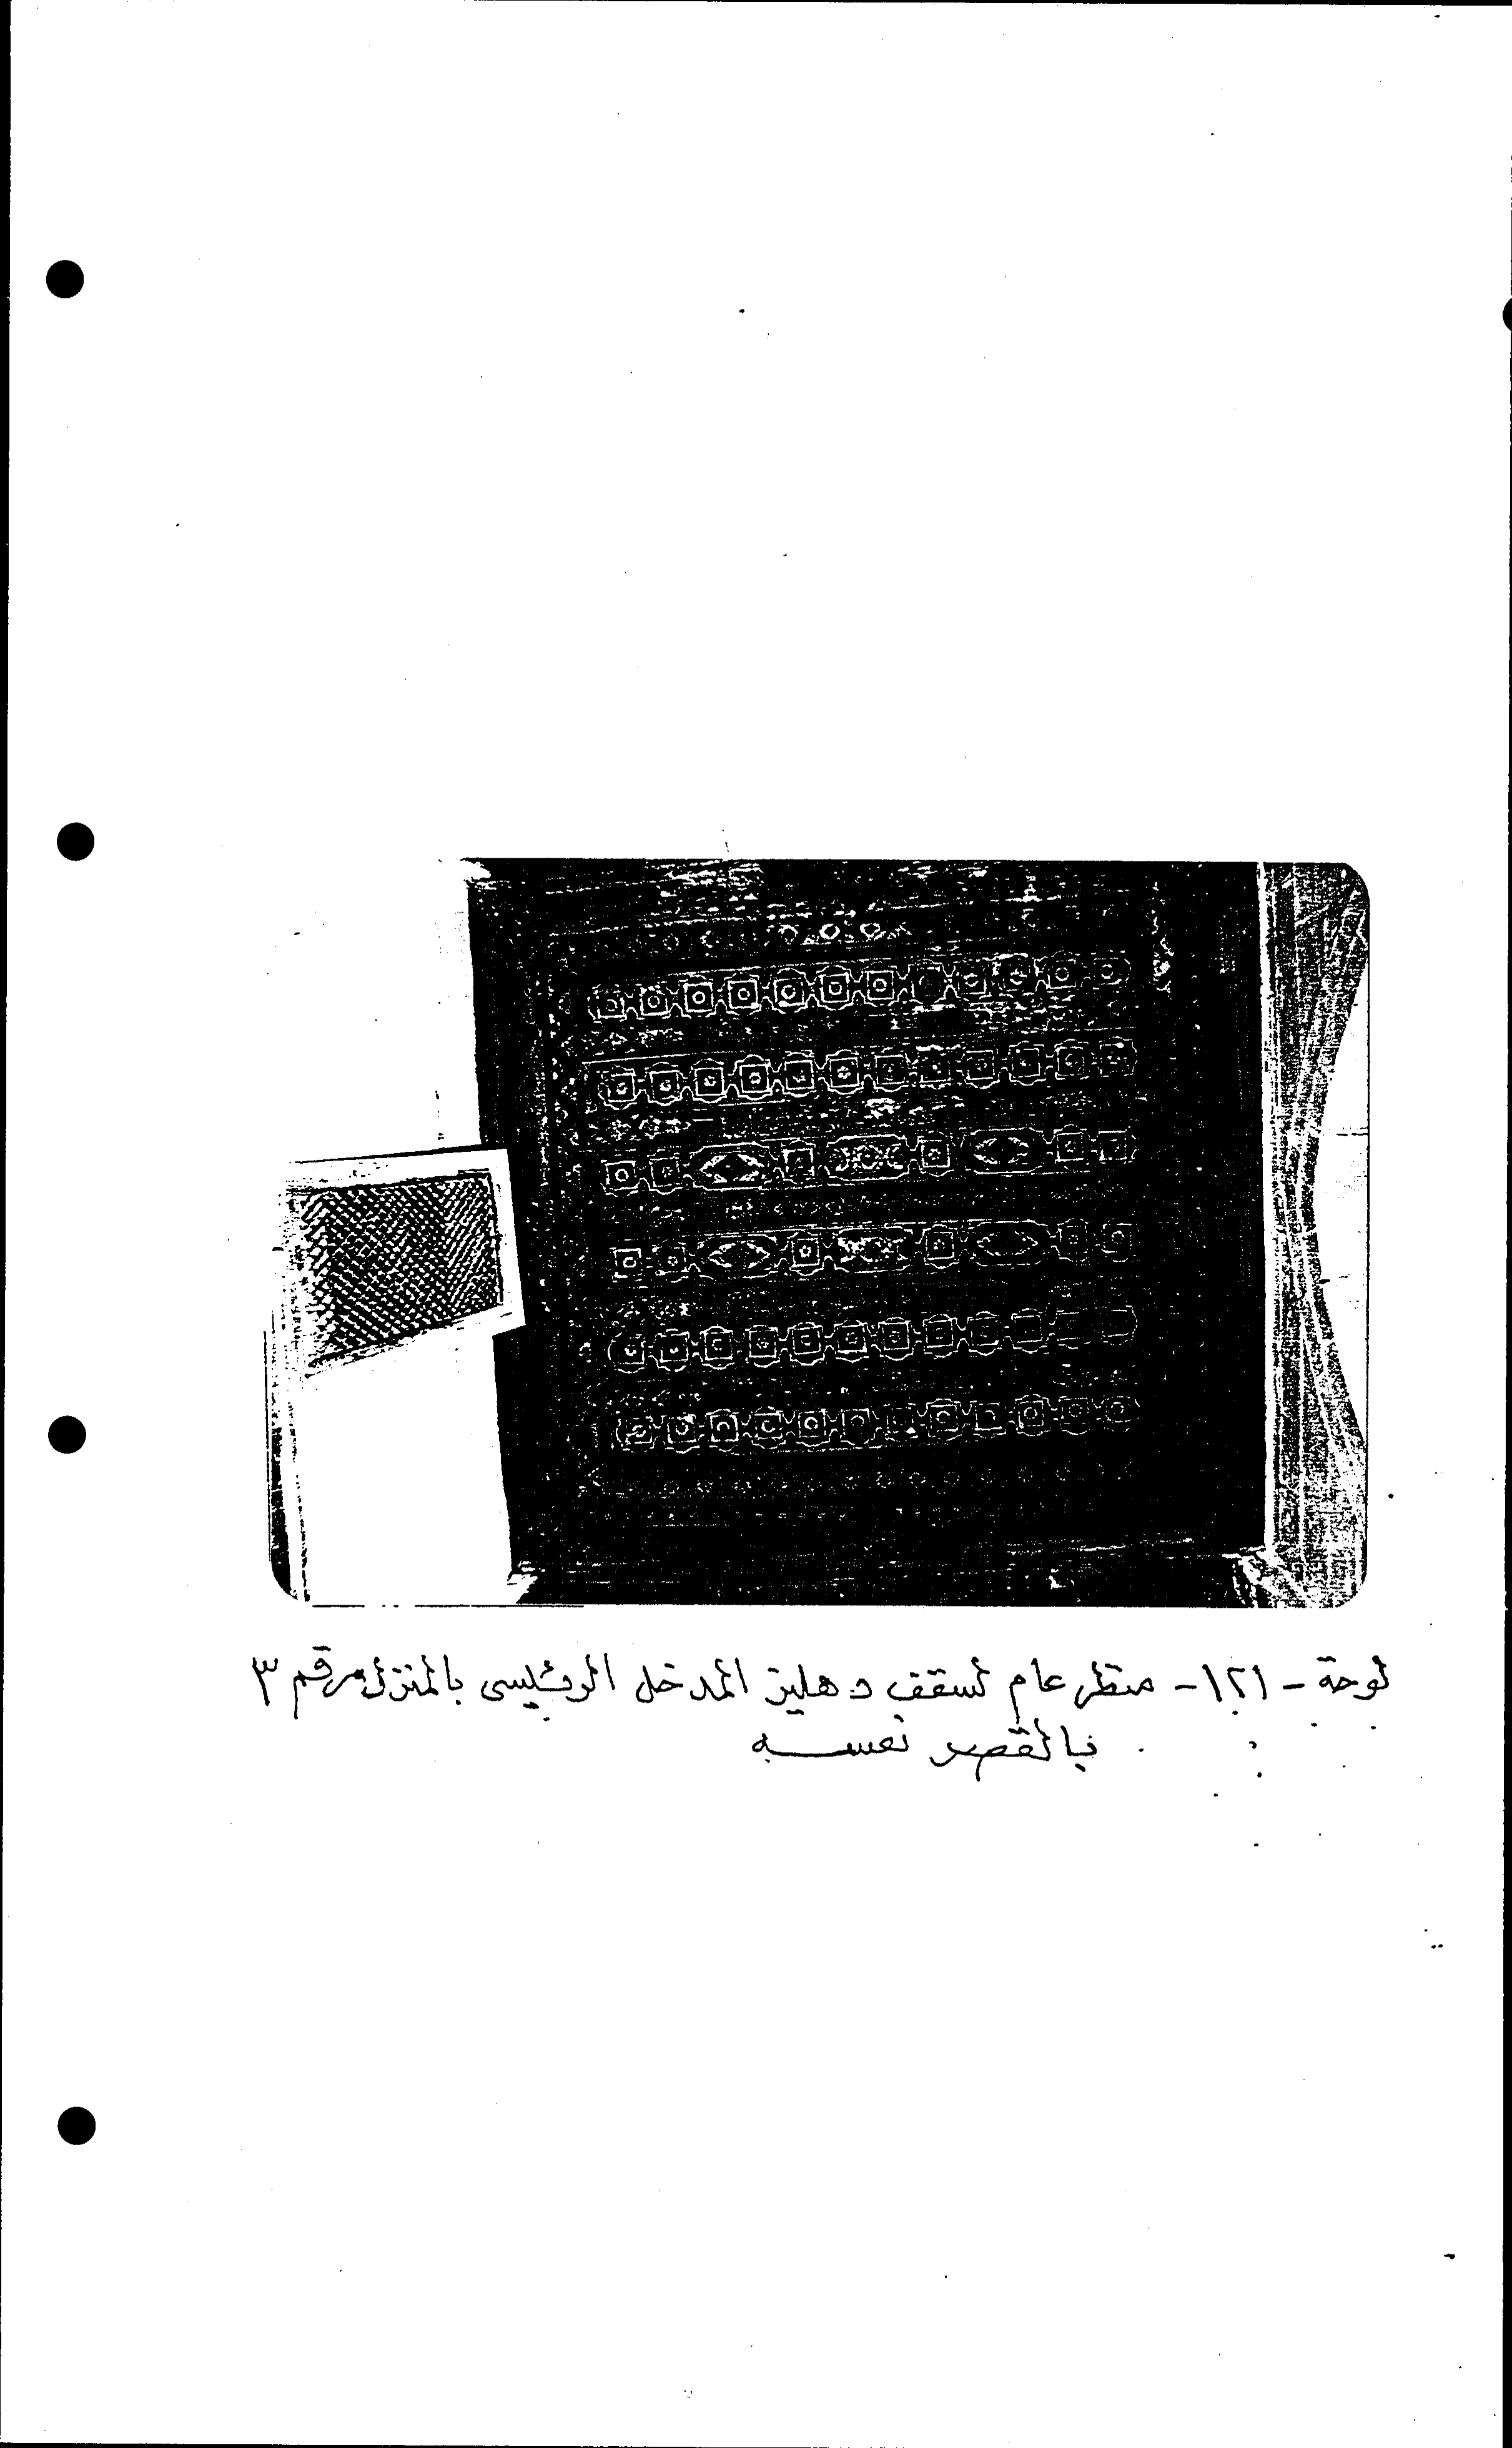 لوحة - ١٢١ - منظر عام لسقف دهليز المدخل الرئيسى بالمنزل رقم ٣
بالقصر نفسه